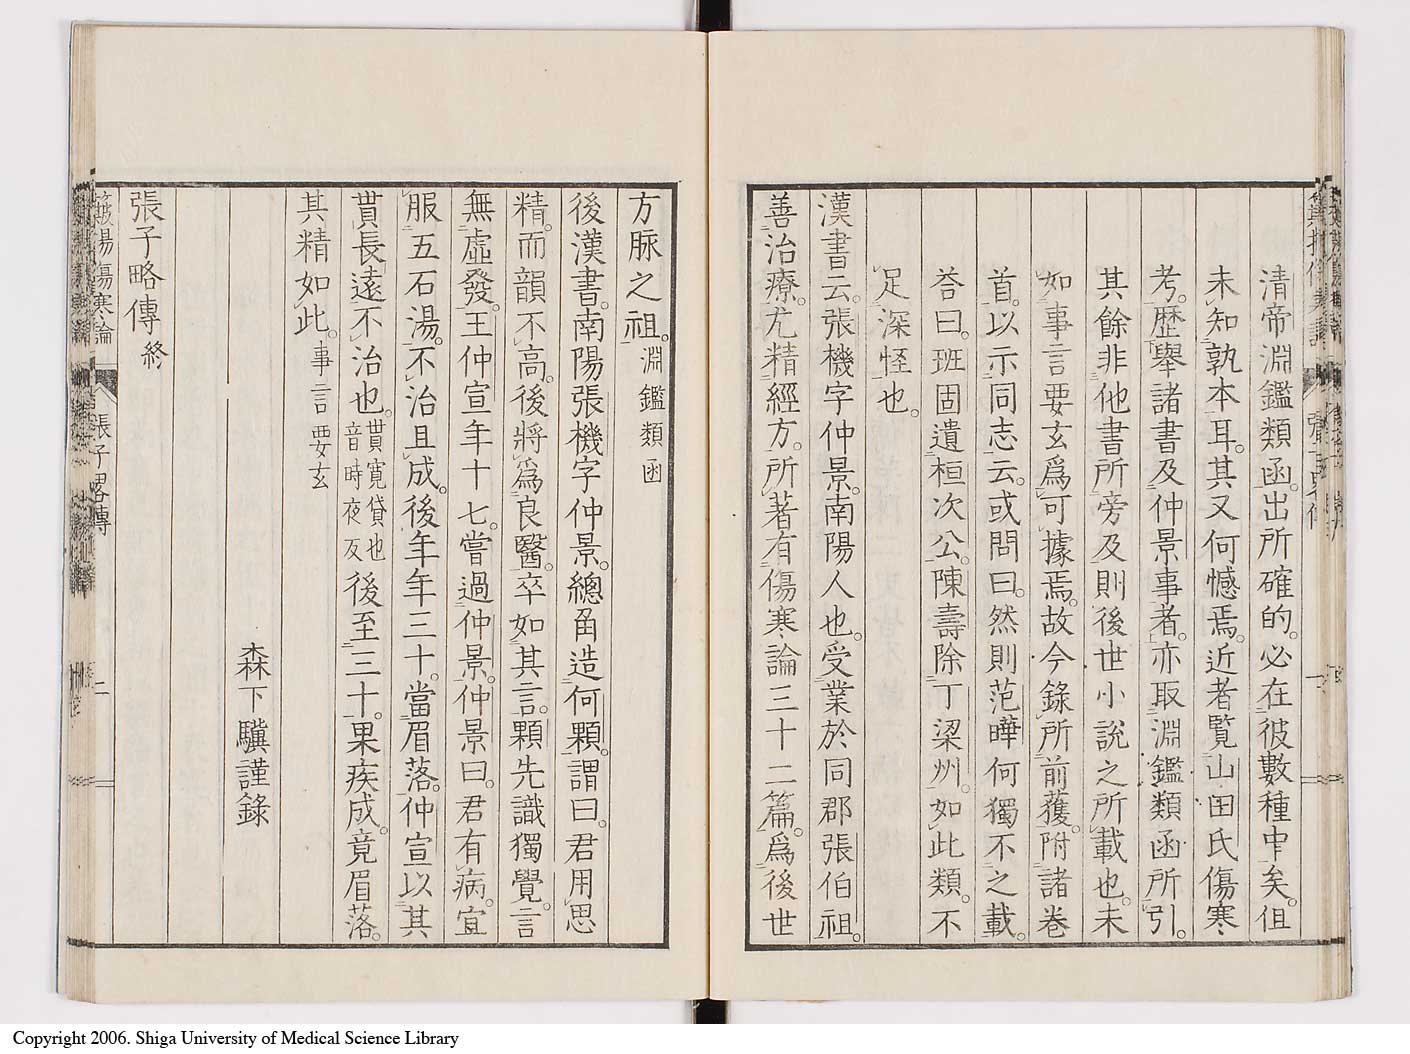 清帝淵鑑類函。出所確的。必在彼數種中矣。但
未知孰本耳。其又何憾焉。近者覧山田氏傷寒
考。歴舉諸書及仲景事者。亦取淵鑑類函所引。
其餘非他書所旁及則後世小說之所載也。未
如事言要玄為可據焉。故今錄所前獲。附諸巻
首。以示同志云。或問曰。然則范曄何獨不之載。
荅曰。班固遺桓次公。陳壽除丁梁州。如此類。不
足深怪也。
漢書云。張機字仲景。南陽人也。受業於同郡張伯祖。
善治療。尤精經方。所著有傷寒論三十二篇。為後世
方脉之祖。淵鑑類函
後漢書。南陽張機字仲景。總角造何顆。謂曰。君用思
精。而韻不高。後將為良醫。卒如其言。顆先識獨覺。言
無虛發。王仲宣年十七。嘗過仲景。仲景曰。君有病。宜
服五石湯。不治且成。後年年三十。當眉落。仲宣以其
貰長遠不治也。貰寛貸也音時夜反後至三十。果疾成。竟眉落。
其精如此。事言要玄
森下驥謹錄
張子略傳終
張子畧傳
二
Copyright 2006. Shiga University of Medical Science Library